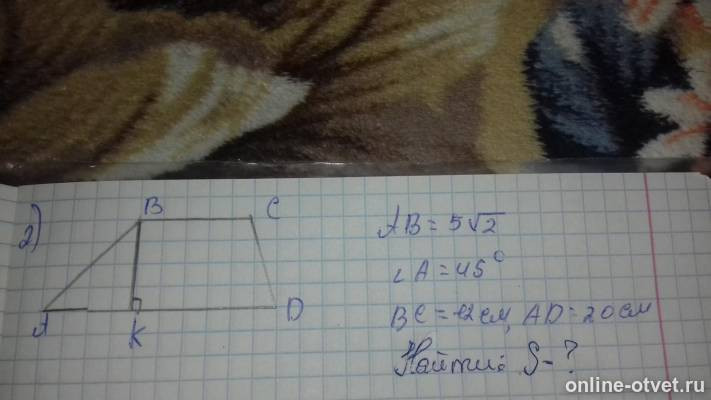 2)
B
C
A
K
D
AB = 5√2
∠A = 45°
BC = 12 см, AD = 20 см
Найти: S - ?
online-otvet.ru